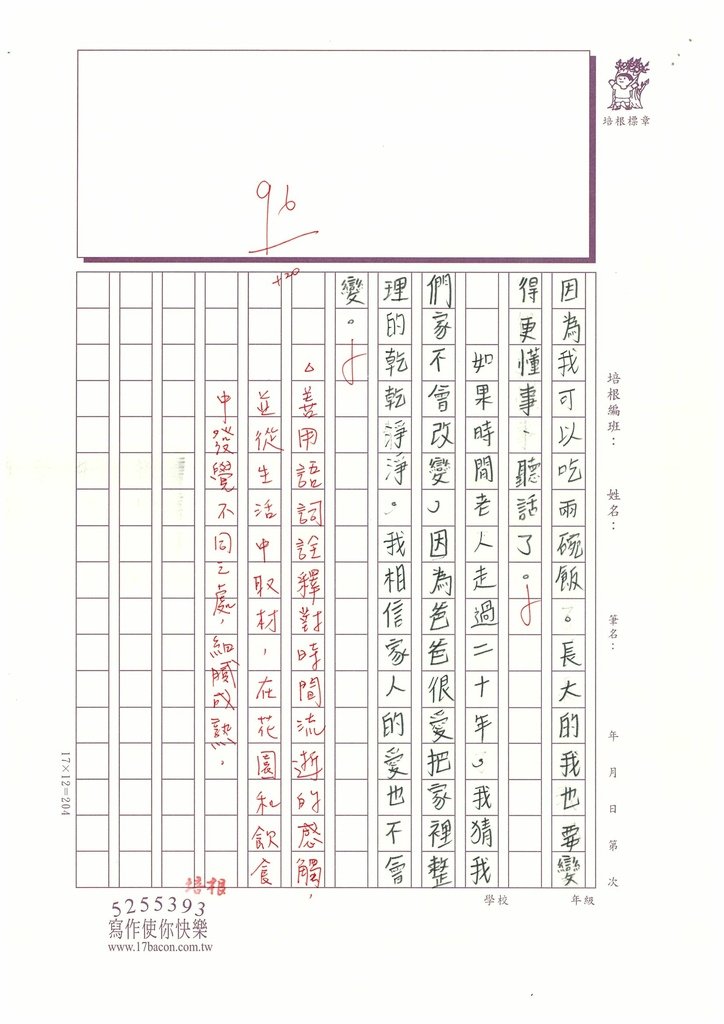 培根標章
96
+20
培根編班：
姓名：
筆名：
年 月 日 第 次
學校 年級
因為我可以吃兩碗飯。長大的我也要變
得更懂事、聽話了。
如果時間老人走過二十年。我猜我
們家不會改變，因為爸爸很愛把家裡整
理的乾乾淨淨。我相信家人的愛也不會
變。
△善用語詞詮釋對時間流逝的感觸，
並從生活中取材，在花園和飲食
中發覺不同之處，細膩成熟。
17×12=204
培根
5255393
寫作使你快樂
www.17bacon.com.tw